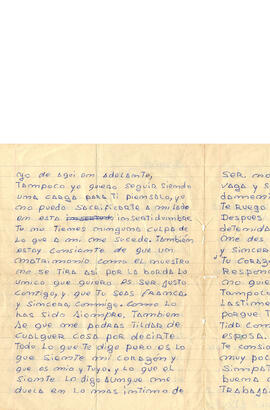 yo de aqui em adelante,
Tampoco yo quiero seguir siendo
uma carga para Ti piemsalo, yo
mo puedo sacrificarte a mi lado
em esta imsertidumbre.
Tu mo Tiemes mimguma culpa de
lo que a mi me sucede. También
estoy comsiente de que um
matrimomio como el muestro
mo se Tira asi por la borda lo
umico que quiero es ser justo
comtigo, y que Tu seas framca
y simcera commigo. Como lo
has sido siempre. Tambiem
se que me podras Tildar de
cualquer cosa por decirte
Todo lo que Te digo pero es lo
que siemte mi corazóm y
que es mio y Tuyo. y lo que el
siemte lo digo aumque me
duela em lo mas imtimo de
ser. mo
vaga y s
damemi
Te ruego
Despues
detemida
ome des
y simcer
Tu coraz
Respom
mo que
Tampoco
Lastime
porque T
Tido com
esposa.
Te comsi
muy poc
simpat
buema c
Trabaja